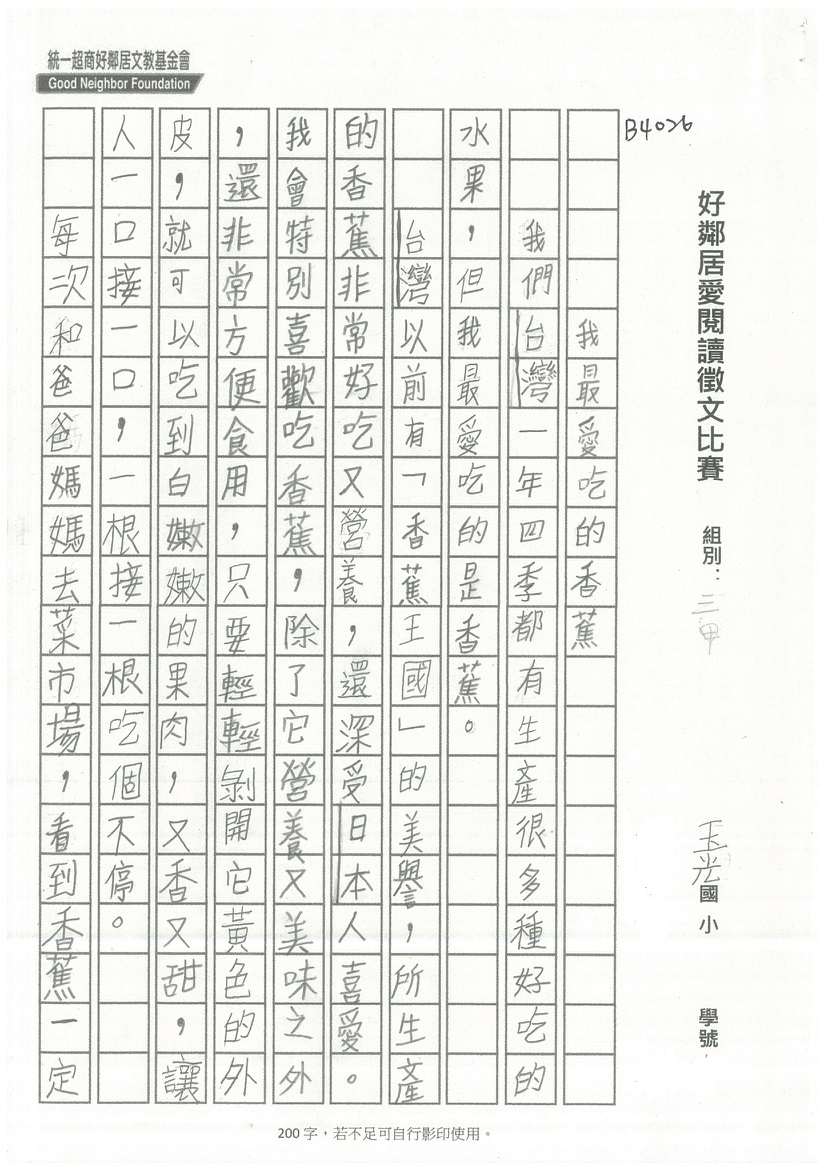 統一超商好鄰居文教基金會
Good Neighbor Foundation
B4026
好鄰居愛閱讀徵文比賽 組別：三甲 玉光國小 學號
我最愛吃的香蕉
我們台灣一年四季都有生產很多種好吃的
水果，但我最愛吃的是香蕉。
台灣以前有「香蕉王國」的美譽，所生產
的香蕉非常好吃又營養，還深受日本人喜愛。
我會特別喜歡吃香蕉，除了它營養又美味之外
，還非常方便食用，只要輕輕剝開它黃色的外
皮，就可以吃到白嫩嫩的果肉，又香又甜，讓
人一口接一口，一根接一根吃個不停。
每次和爸爸媽媽去菜市場，看到香蕉一定
200字，若不足可自行影印使用。